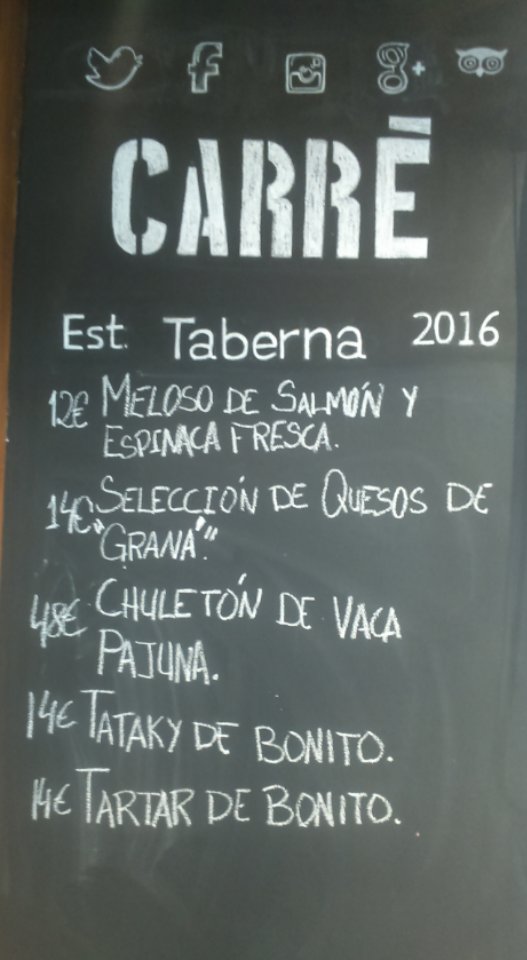 g+
CARRÉ
Est. Taberna 2016
12€ MELOSO DE SALMÓN Y
ESPINACA FRESCA.
14€ SELECCIÓN DE QUESOS DE
"GRANÁ".
48€ CHULETÓN DE VACA
PAJUNA.
14€ TATAKY DE BONITO.
14€ TARTAR DE BONITO.